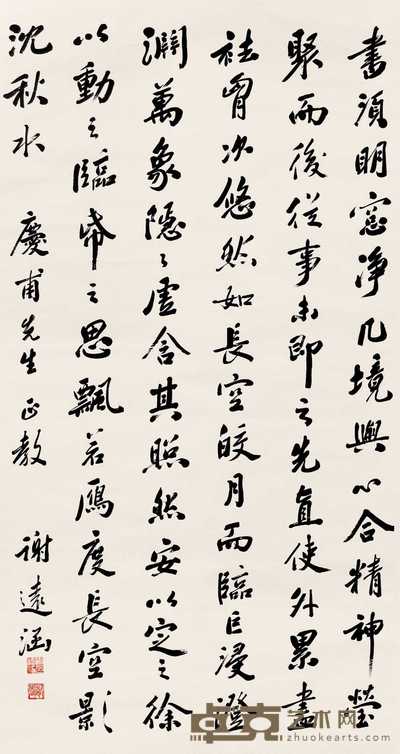 書須明窓净几境與心合精神瑩
聚而後從事未即之先直使外累盡
祛胷次悠然如長空皎月而臨巨浸澄
淵萬象隱々虛含其照然安以定之徐
以動之臨帋之思飄若鴈度長空影
沈秋水
慶甫先生正教
謝遠涵
卓克艺术网
zhuokearts.com